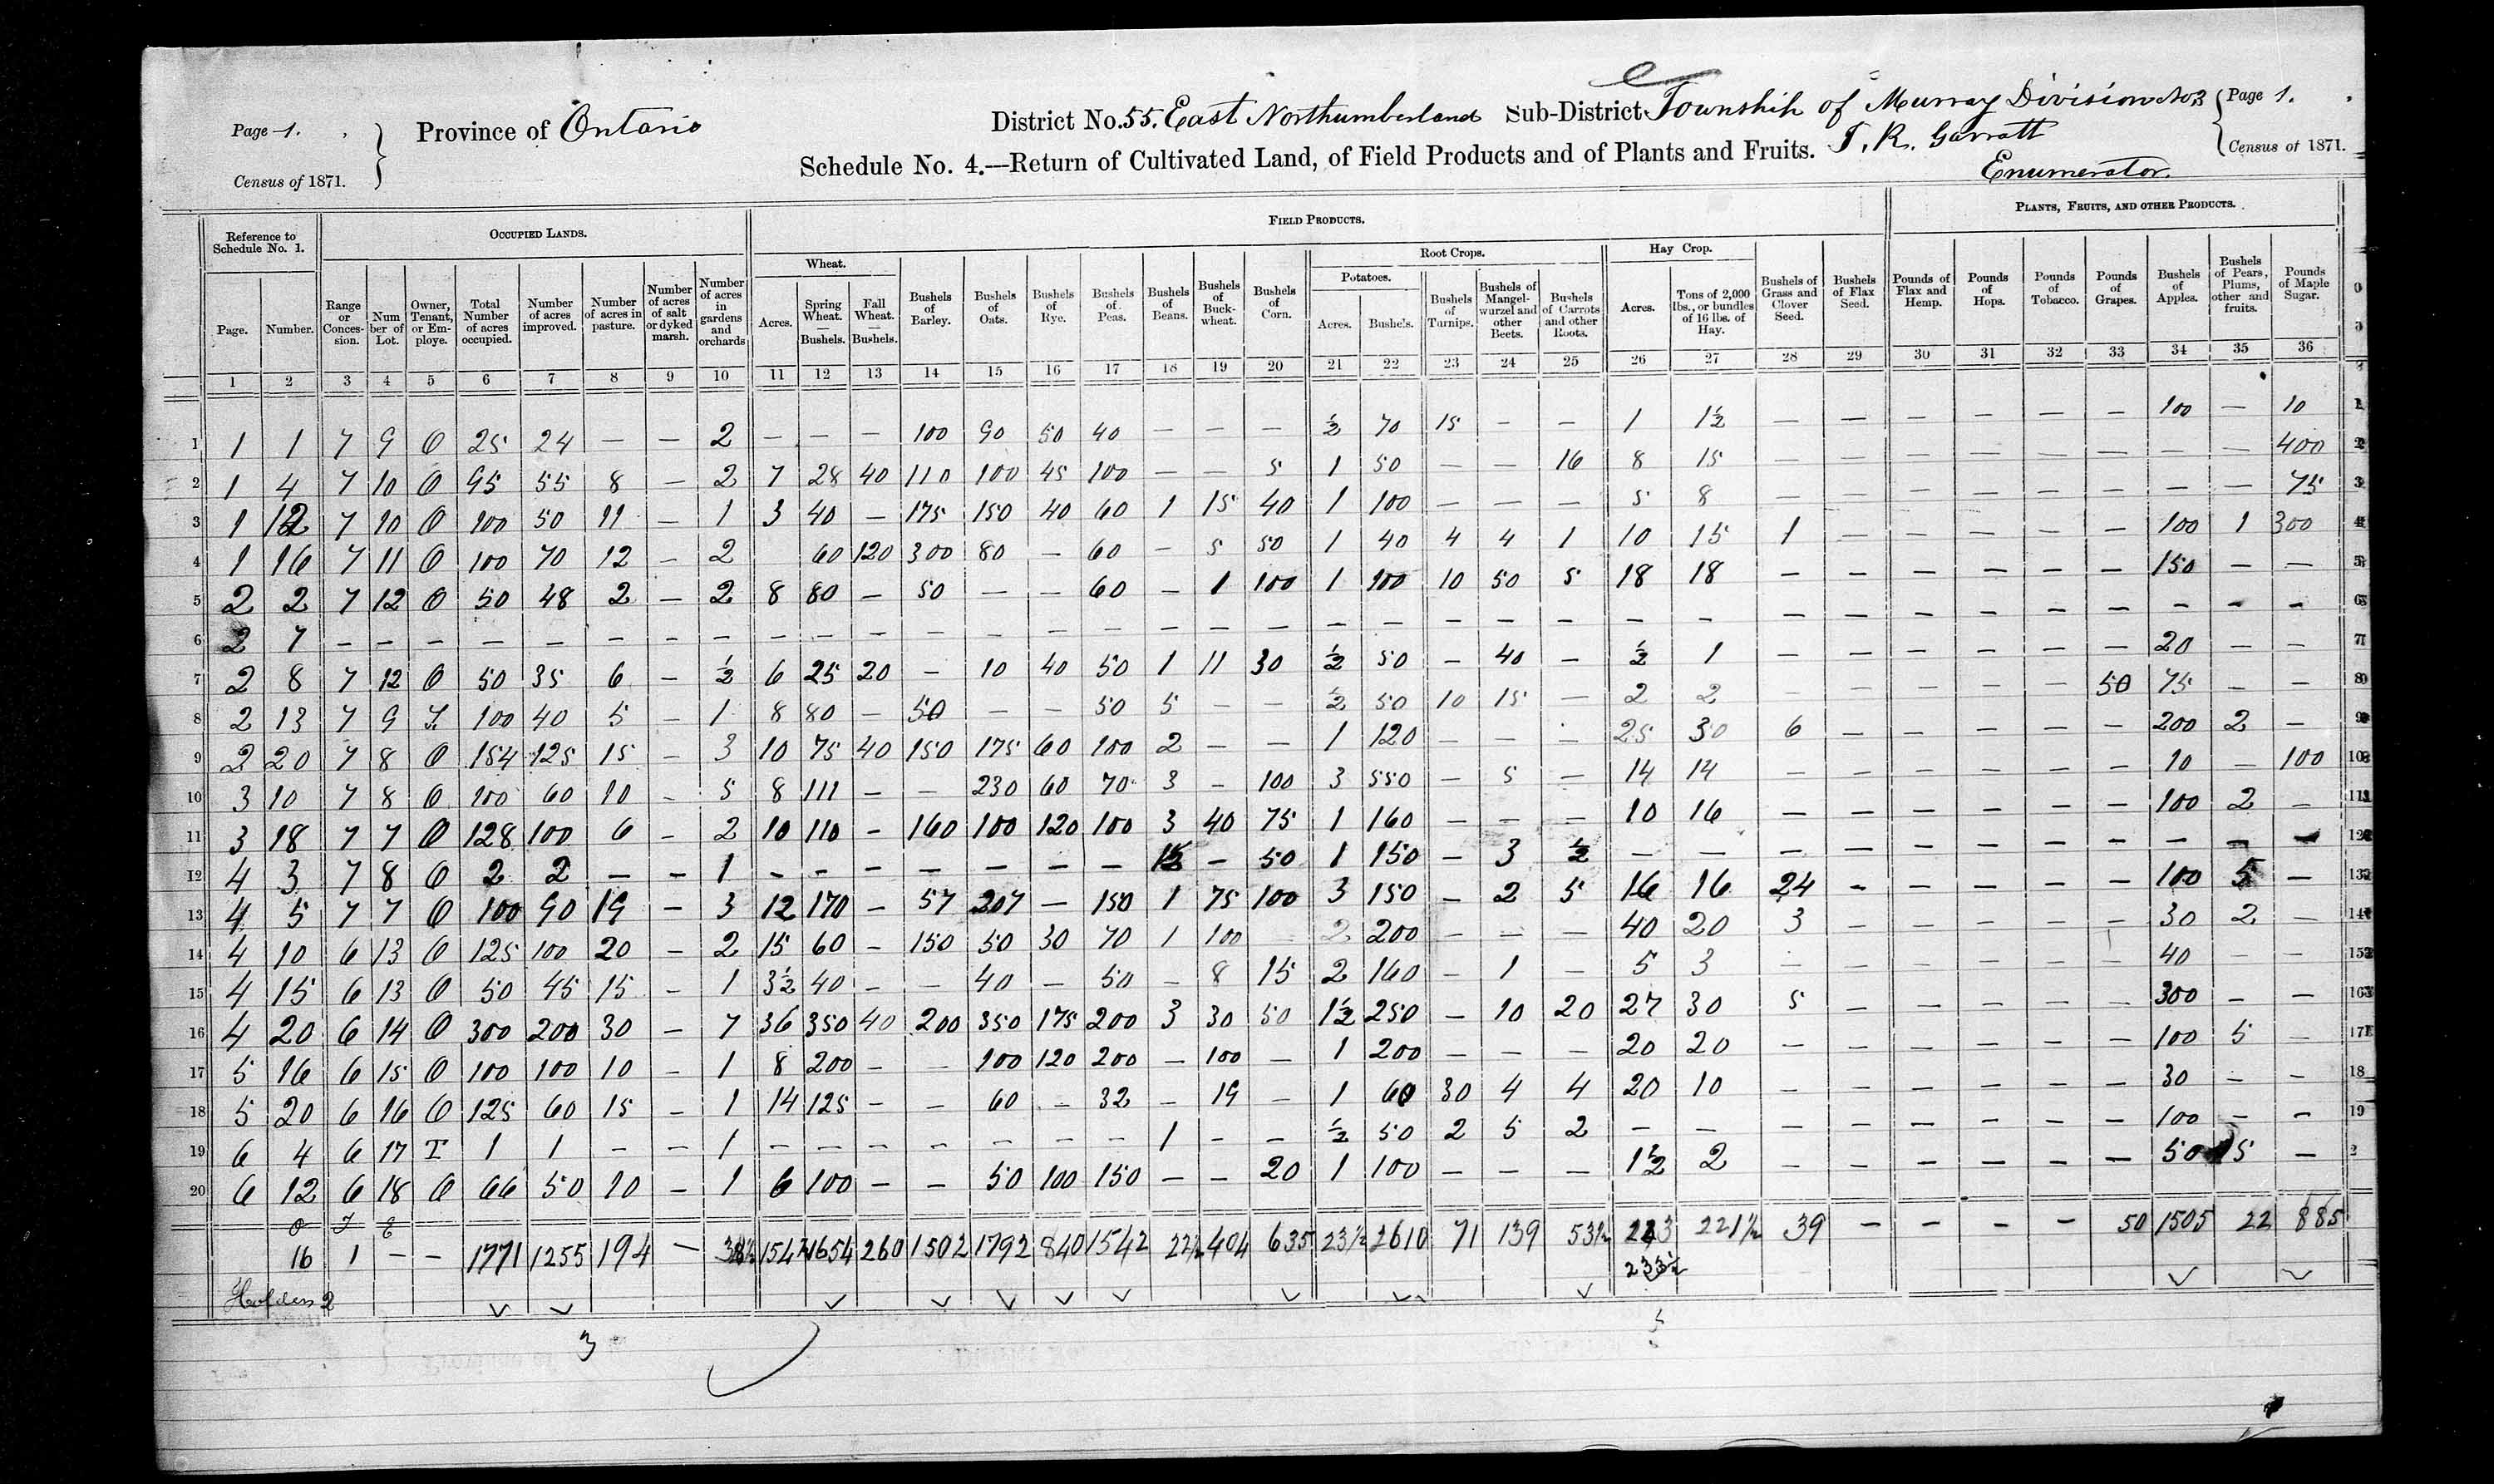 Page 1. Province of Ontario District No. 55. East Northumberland Sub-District Township of Murray Division No 3 Page 1.
Census of 1871. Schedule No. 4.—Return of Cultivated Land, of Field Products and of Plants and Fruits. T. R. Garratt Census of 1871.
Enumerator.
Reference to Schedule No. 1. OCCUPIED LANDS. FIELD PRODUCTS. PLANTS, FRUITS, AND OTHER PRODUCTS.
Wheat. Root Crops. Hay Crop.
Potatoes.
Page. Number. Range or Conces-sion. Num ber of Lot. Owner, Tenant, or Em-ploye. Total Number of acres occupied. Number of acres improved. Number of acres in pasture. Number of acres of salt or dyked marsh. Number of acres in gardens and orchards Acres. Spring Wheat. — Bushels. Fall Wheat. — Bushels. Bushels of Barley. Bushels of Oats. Bushels of Rye. Bushels of Peas. Bushels of Beans. Bushels of Buck-wheat. Bushels of Corn. Acres. Bushels. Bushels of Turnips. Bushels of Mangel-wurzel and other Beets. Bushels of Carrots and other Roots. Acres. Tons of 2,000 lbs., or bundles of 16 lbs. of Hay. Bushels of Grass and Clover Seed. Bushels of Flax Seed. Pounds of Flax and Hemp. Pounds of Hops. Pounds of Tobacco. Pounds of Grapes. Bushels of Apples. Bushels of Pears, Plums, other and fruits. Pounds of Maple Sugar.
1 2 3 4 5 6 7 8 9 10 11 12 13 14 15 16 17 18 19 20 21 22 23 24 25 26 27 28 29 30 31 32 33 34 35 36
1 1 1 7 9 O 25 24 — — 2 — — — 100 90 50 40 — — — ½ 70 15 — — 1 1½ — — — — — — 100 — 10 1
2 1 4 7 10 O 95 55 8 — 2 7 28 40 110 100 45 100 — — 5 1 50 — — 16 8 15 — — — — — — — — 400 2
3 1 12 7 10 O 100 50 11 — 1 3 40 — 175 150 40 60 1 15 40 1 100 — — — 5 8 — — — — — — — — 75 3
4 1 16 7 11 O 100 70 12 — 2 60 120 300 80 — 60 — 5 50 1 40 4 4 1 10 15 1 — — — — — 100 1 300 4
5 2 2 7 12 O 50 48 2 — 2 8 80 — 50 — — 60 — 1 100 1 100 10 50 5 18 18 — — — — — — 150 — — 5
6 2 7 — — — — — — — — — — — — — — — — — — — — — — — — — — — — — — — — — — 6
7 2 8 7 12 O 50 35 6 — ½ 6 25 20 — 10 40 50 1 11 30 ½ 50 — 40 — ½ 1 — — — — — — 20 — — 7
8 2 13 7 9 T. 100 40 5 — 1 8 80 — 50 — — 50 5 — — ½ 50 10 15 — 2 2 — — — — — 50 75 — — 8
9 2 20 7 8 O 154 125 15 — 3 10 75 40 150 175 60 100 2 — — 1 120 — — — 25 30 6 — — — — — 200 2 — 9
10 3 10 7 8 O 100 60 10 — 5 8 111 — — 230 60 70 3 — 100 3 550 — 5 — 14 14 — — — — — — 10 — 100 10
11 3 18 7 7 O 128 100 6 — 2 10 110 — 160 100 120 100 3 40 75 1 160 — — — 10 16 — — — — — — 100 2 — 11
12 4 3 7 8 O 2 2 — — 1 — — — — — — — 1½ — 50 1 150 — 3 ½ — — — — — — — — — — — 12
13 4 5 7 7 O 100 90 19 — 3 12 170 — 57 207 — 150 1 75 100 3 150 — 2 5 16 16 24 — — — — — 100 5 — 13
14 4 10 6 13 O 125 100 20 — 2 15 60 — 150 50 30 70 1 100 — 2 200 — — — 40 20 3 — — — — — 30 2 — 14
15 4 15 6 13 O 50 45 15 — 1 3½ 40 — — 40 — 50 — 8 15 2 160 — 1 — 5 3 — — — — — — 40 — — 15
16 4 20 6 14 O 300 200 30 — 7 36 350 40 200 350 175 200 3 30 50 1½ 250 — 10 20 27 30 5 — — — — — 300 — — 16
17 5 16 6 15 O 100 100 10 — 1 8 200 — — 100 120 200 — 100 — 1 200 — — — 20 20 — — — — — — 100 5 — 17
18 5 20 6 16 O 125 60 15 — 1 14 125 — — 60 — 32 — 19 — 1 60 30 4 4 20 10 — — — — — — 30 — — 18
19 6 4 6 17 T 1 1 — — 1 — — — — — — — 1 — — ½ 50 2 5 2 — — — — — — — — 100 — — 19
20 6 12 6 18 O 66 50 10 — 1 6 100 — — 50 100 150 — — 20 1 100 — — — 1½ 2 — — — — — — 50 5 — 2
O T E
16 1 — — 1771 1255 194 — 38½ 154½ 1654 260 1502 1792 840 1542 22½ 404 635 23½ 2610 71 139 53½ 223 221½ 39 — — — — 50 1505 22 885
233½
Holders 2
3